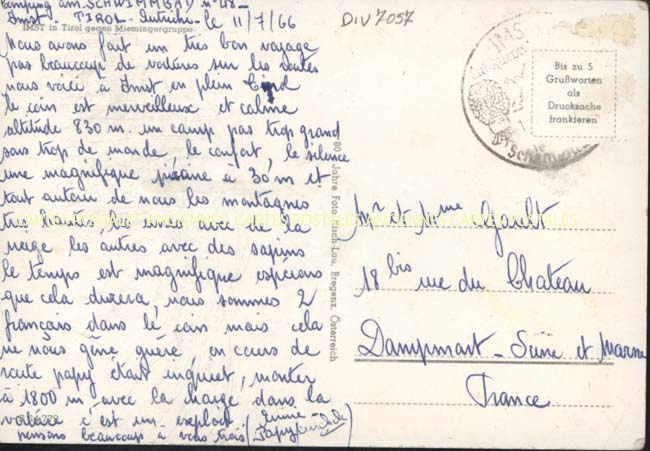 Camping am SCHWIMMBAD n° 48 -
Imst - TIROL - Autriche - le 11/7/66
IMST in Tirol gegen Miemingergruppe
Nous avons fait un très bon voyage
pas beaucoup de voitures sur les routes
nous voici à Imst en plein Tirol
le coin est merveilleux et calme
altitude 830 m. un camp pas trop grand
sans trop de monde, le confort, le silence
une magnifique piscine à 30 m et
tout autour de nous les montagnes
très hautes les unes avec de la
neige les autres avec des sapins
le temps est magnifique espérons
que cela durera, nous sommes 2
français dans le coin mais cela
ne nous gêne guère, en cours de
route papy était inquiet, monter
à 1800 m avec la charge dans la
voiture c'est un exploit
pensons beaucoup à vous trois
DIV 7057
IMST
Bis zu 5
Grußworten
als
Drucksache
frankieren
80 Jahre Foto Risch-Lau, Bregenz, Österreich
Mr et Mme Gault
18 bis rue du Chateau
Dampmart - Seine et Marne
France
CARTES POSTALES